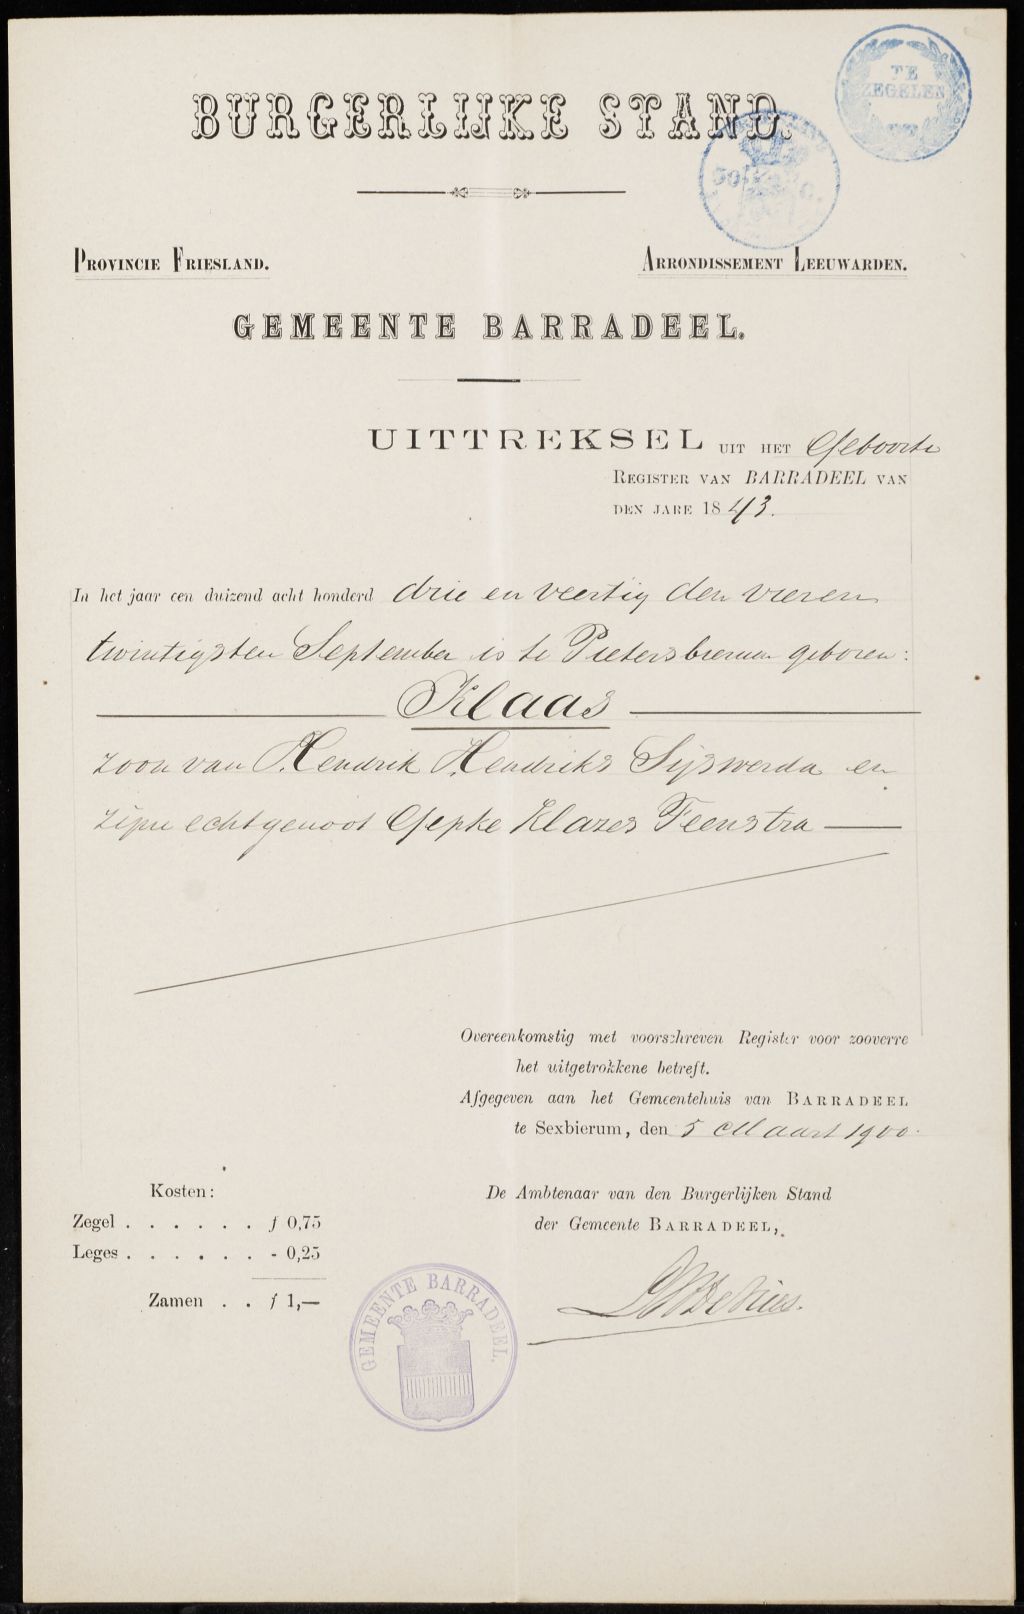 TE
ZEGELEN
BURGERLIJKE STAND.
50 C.
PROVINCIE FRIESLAND.
ARRONDISSEMENT LEEUWARDEN.
GEMEENTE BARRADEEL.
UITTREKSEL UIT HET Geboorte
REGISTER VAN BARRADEEL VAN
DEN JARE 1843.
In het jaar een duizend acht honderd drie en veertig den vieren
twintigsten September is te Pietersbierum geboren:
Klaas
zoon van Hendrik Hendriks Sijswerda en
zijne echtgenoot Gepke Klazes Feenstra
Overeenkomstig met voorschreven Register voor zooverre
het uitgetrokkene betreft.
Afgegeven aan het Gemeentehuis van BARRADEEL
te Sexbierum, den 5 Maart 1900.
Kosten:
Zegel . . . . . . f 0,75
Leges . . . . . . - 0,25
Zamen . . f 1,—
De Ambtenaar van den Burgerlijken Stand
der Gemeente BARRADEEL,
de Vries.
GEMEENTE BARRADEEL.